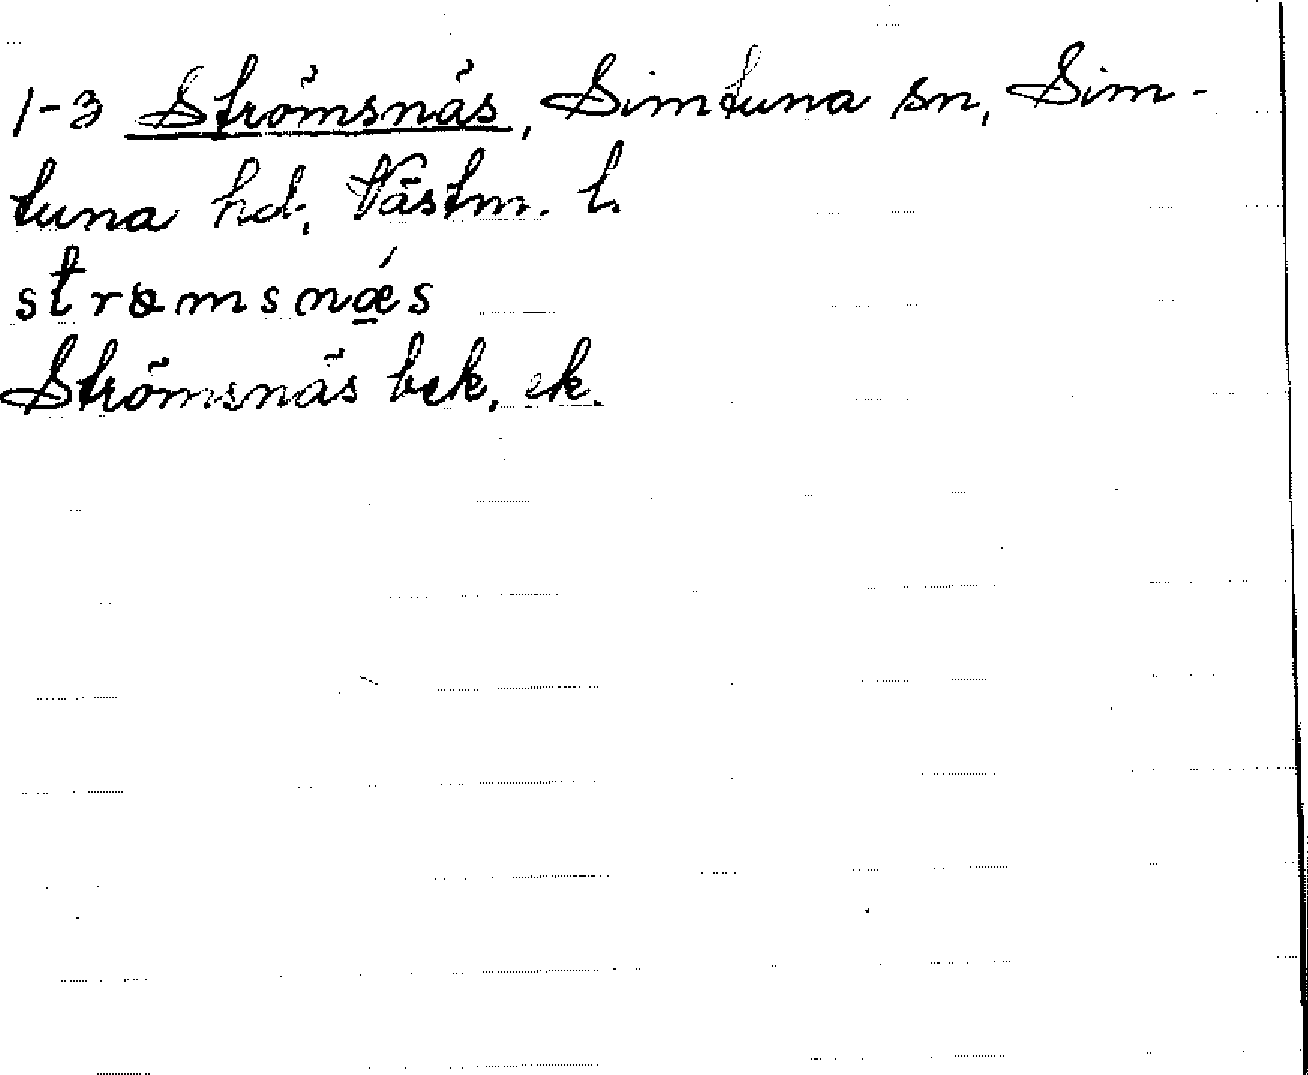 1-3 Strömsnäs, Simtuna sn, Sim-
tuna hd, Västm. l.
strømsnǽs
Strömsnäs bek. ek.